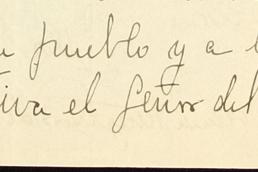 pueblo y a
el Señor del